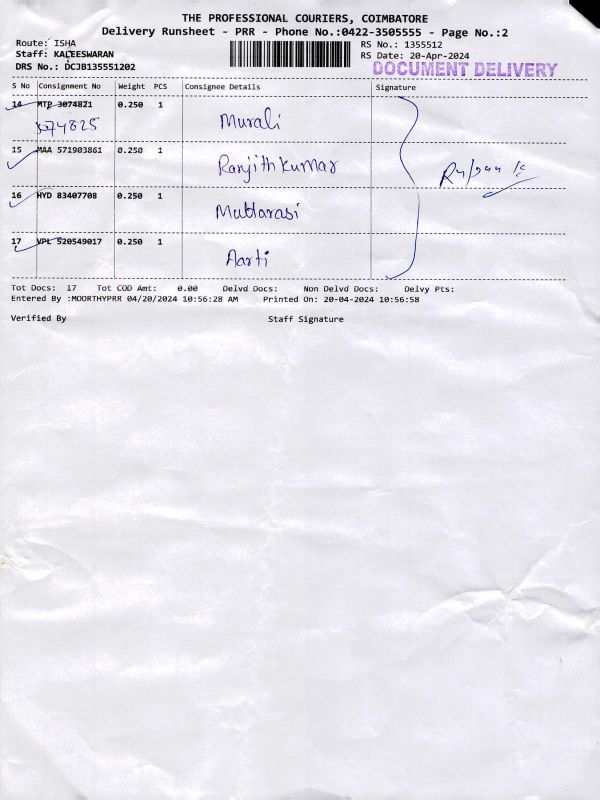 THE PROFESSIONAL COURIERS, COIMBATORE
Delivery Runsheet - PRR - Phone No.:0422-3505555 - Page No.:2
Route: ISHA
RS No.: 1355512
Staff: KALEESWARAN
RS Date: 20-Apr-2024
DRS No.: DCJB135551202
DOCUMENT DELIVERY
S No Consignment No Weight PCS Consignee Details Signature
14 MTP 3074821 0.250 1
3074825 Murali
15 MAA 571903861 0.250 1
Ranjith kumar
16 HYD 83407708 0.250 1
Muttarasi
17 VPL 520549017 0.250 1
Aarti
Tot Docs: 17 Tot COD Amt: 0.00 Delvd Docs: Non Delvd Docs: Delvy Pts:
Entered By :MOORTHYPRR 04/20/2024 10:56:28 AM Printed On: 20-04-2024 10:56:58
Verified By Staff Signature